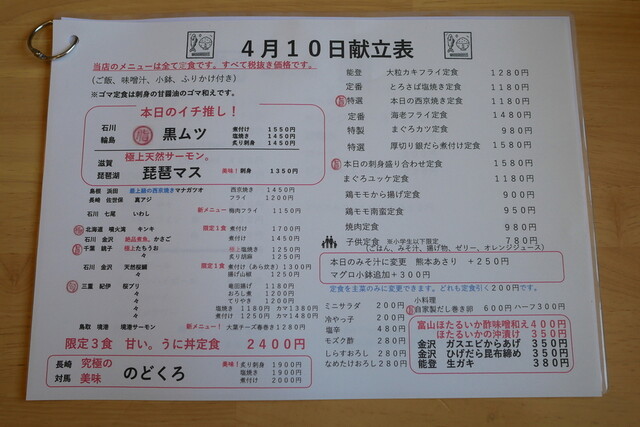 4月10日献立表
当店のメニューは全て定食です。すべて税抜き価格です。
(ご飯、味噌汁、小鉢、ふりかけ付き)
※ゴマ定食は刺身の甘醤油のゴマ和えです。
本日のイチ推し！
石川 輪島 黒ムツ
煮付け 1550円
塩焼き 1450円
炙り刺身 1450円
極上天然サーモン。
滋賀 琵琶湖 琵琶マス 美味！刺身 1350円
島根 浜田 最上級の西京焼きマナガツオ 西京焼き 1450円
長崎 佐世保 真アジ フライ 1200円
石川 七尾 いわし 新メニュー！梅肉フライ 1150円
北海道 噴火湾 キンキ 限定1食 煮付け 1700円
石川 金沢 絶品煮魚。かさご 煮付け 1450円
千葉 銚子 極上たちうお ※上塩焼き 1250円
々 々 炙り胡麻 1250円
石川 金沢 天然桜鯛 限定1食 煮付け(あら炊き)1300円
々 々 揚げ山椒 1250円
三重 紀伊 桜ブリ 竜田揚げ 1180円
々 々 おろし煮 1200円
々 々 てりやき 1200円
々 々 塩焼き 1180円 カマ1380円
々 々 煮付け 1250円 カマ1480円
鳥取 境港 境港サーモン 新メニュー！大葉チーズ春巻き1280円
限定3食 甘い。うに丼定食 2400円
長崎 対馬 究極の美味 のどくろ
美味！炙り刺身 1900円
塩焼き 1900円
煮付け 2000円
能登 大粒カキフライ定食 1280円
定番 とろさば塩焼き定食 1180円
特選 本日の西京焼き定食 1180円
定番 海老フライ定食 1480円
特製 まぐろカツ定食 980円
特選 厚切り銀だら煮付け定食 1580円
本日の刺身盛り合わせ定食 1580円
まぐろユッケ定食 1180円
鶏モモから揚げ定食 900円
鶏モモ南蛮定食 950円
焼肉定食 980円
子供定食 ※小学生以下限定 780円
(ごはん、みそ汁、揚げ物、ゼリー、オレンジジュース)
本日のみそ汁に変更 熊本あさり +250円
マグロ小鉢追加+300円
定食を主菜のみに変更できます。どれも定食引く200円です。
ミニサラダ 200円
冷やっ子 200円
塩辛 480円
モズク酢 280円
しらすおろし 280円
なめたけおろし 280円
小料理
自家製だし巻き卵 600円 ハーフ300円
富山ほたるいか酢味噌和え400円
ほたるいかの沖漬け 350円
金沢 ガスエビからあげ 350円
金沢 ひげだら昆布締め 350円
能登 生ガキ 380円